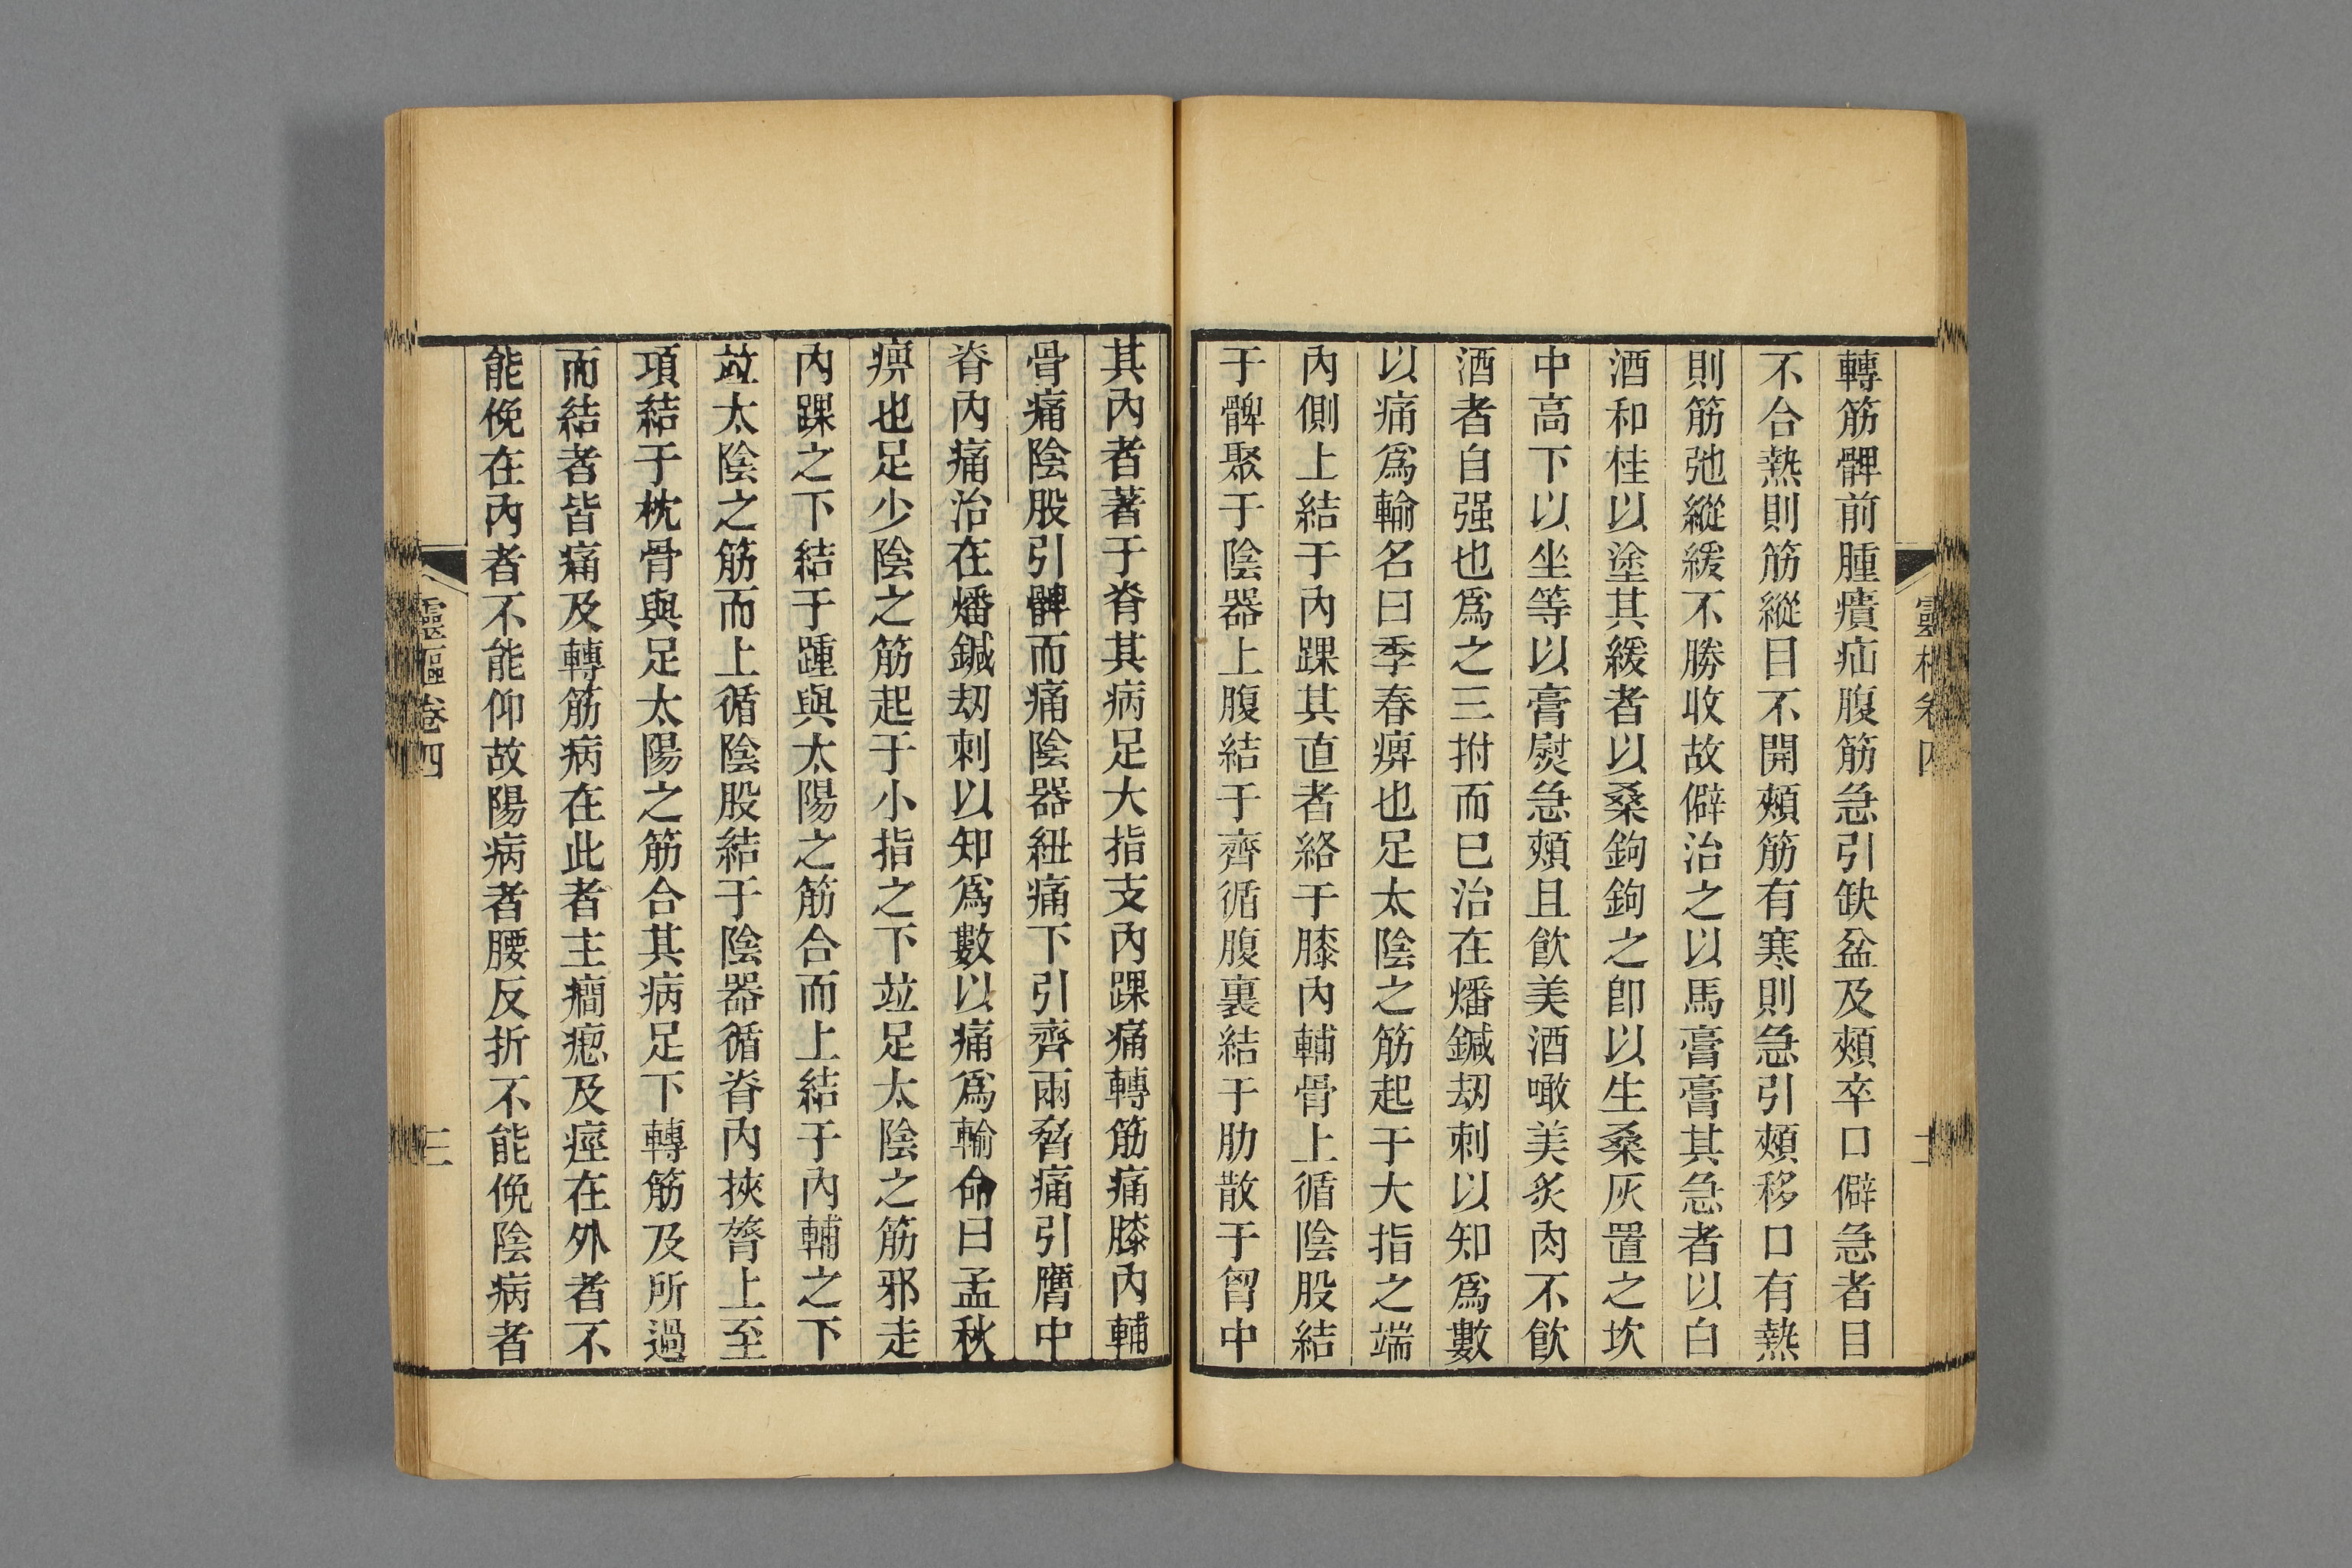 轉筋髀前腫㿉疝腹筋急引缺盆及頰卒口僻急者目
不合熱則筋縱目不開頰筋有寒則急引頰移口有熱
則筋弛縱緩不勝收故僻治之以馬膏膏其急者以白
酒和桂以塗其緩者以桑鉤鉤之卽以生桑灰置之坎
中高下以坐等以膏熨急頰且飮美酒噉美炙肉不飮
酒者自强也爲之三拊而已治在燔鍼刼刺以知爲數
以痛爲輸名曰季春痹也足太陰之筋起于大指之端
內側上結于內踝其直者絡于膝內輔骨上循陰股結
于髀聚于陰器上腹結于齊循腹裏結于肋散于胷中
其內者著于脊其病足大指支內踝痛轉筋痛膝內輔
骨痛陰股引髀而痛陰器紐痛下引齊兩脅痛引膺中
脊內痛治在燔鍼刼刺以知爲數以痛爲輸命曰孟秋
痹也足少陰之筋起于小指之下竝足太陰之筋邪走
內踝之下結于踵與太陽之筋合而上結于內輔之下
竝太陰之筋而上循陰股結于陰器循脊內挾膂上至
項結于枕骨與足太陽之筋合其病足下轉筋及所過
而結者皆痛及轉筋病在此者主癎瘛及痙在外者不
能俛在內者不能仰故陽病者腰反折不能俛陰病者
靈樞卷四
三